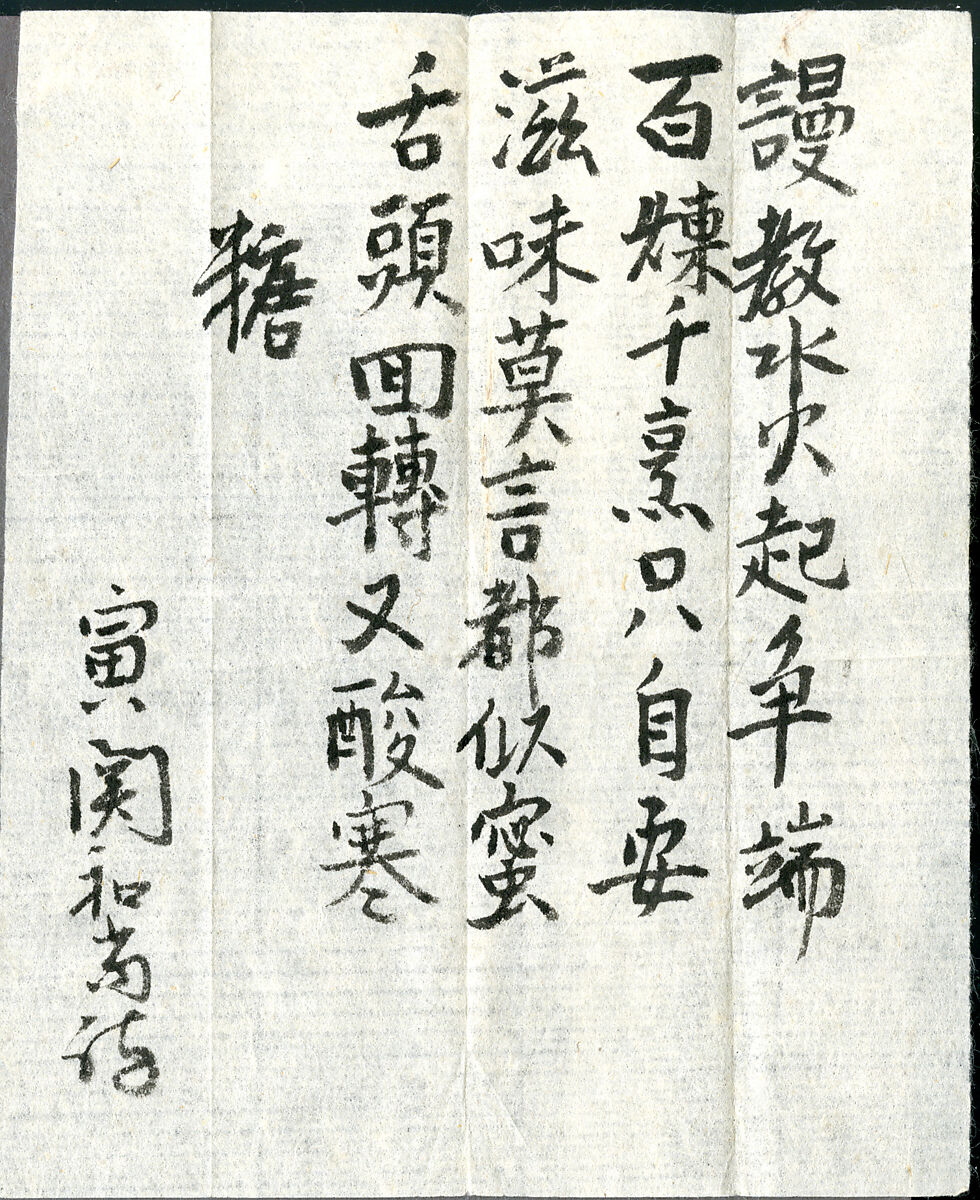 謾教水火起争端
百煉千烹只自要
滋味莫言都似蜜
舌頭囬轉又酸寒
糖
寅関和尚詩